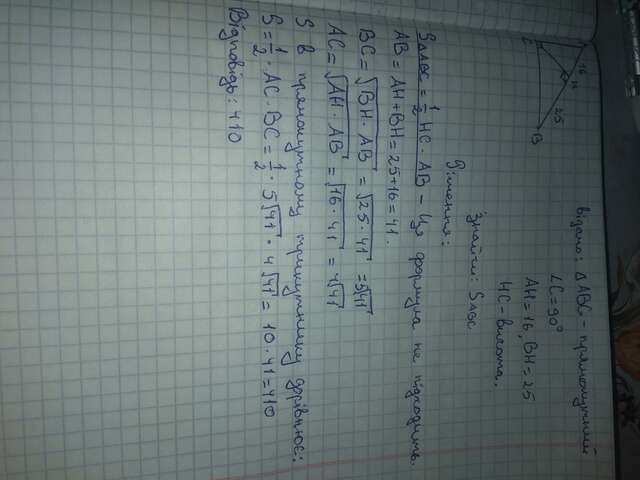 16
H
25
C
B
відомо: ΔABC - прямокутний
∠C=90°
AH=16, BH=25
HC - висота.
Знайти: SΔABC
Рішення:
SΔABC = 1/2 HC · AB - Ця формула не підходить.
AB = AH + BH = 25+16 = 41.
BC = √BH · AB = √25 · 41 = 5√41
AC = √AH · AB = √16 · 41 = 4√41
S в прямокутному трикутнику дорівнює:
S = 1/2 · AC · BC = 1/2 · 5√41 · 4√41 = 10 · 41 = 410
Відповідь: 410